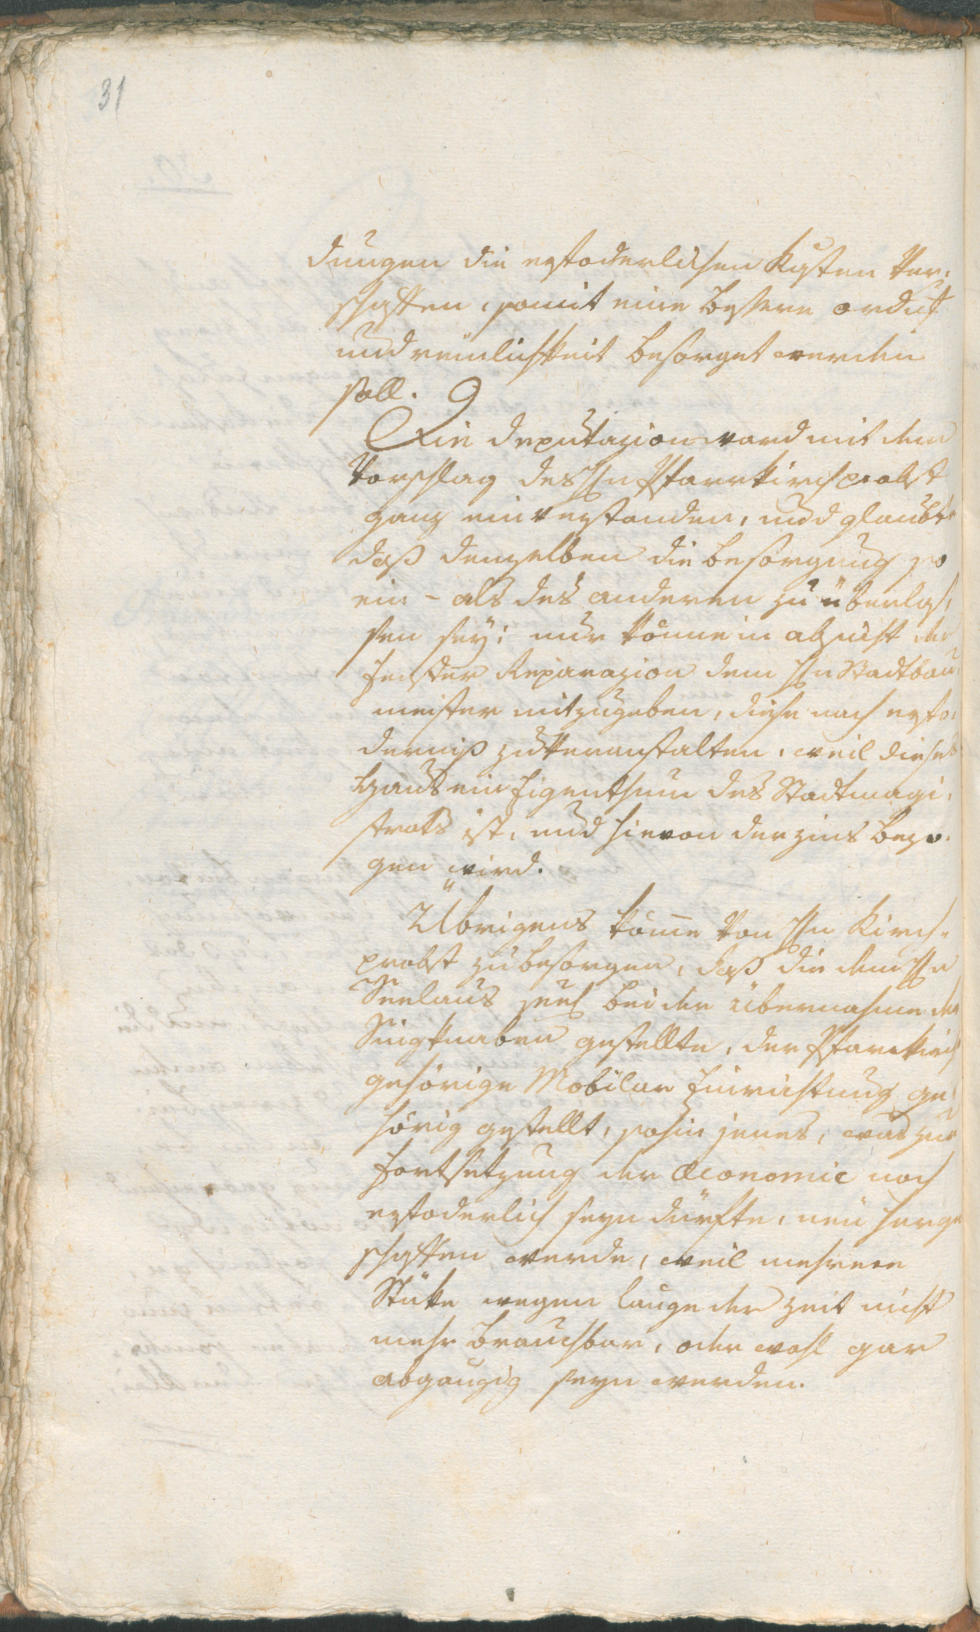 31
dungen die erfoderlichen Kästen ver-
schaffen, somit eine bessere ordnung
und reinlichkeit besorget werden
soll.
Die Deputazion ward mit dem
Vorschlag des Hn Pfarrkirchprobst
ganz einverstanden, und glaubte
daß demselben die besorgung so
ein – als des anderen zu überlas,
sen sey: nur könne in absicht der
fenster Reparazion dem Hn Stadtbau
meister mitzugeben, diese nach erfo,
derniß zu veranstalten, weil dieses
Haus ein Eigenthum des Stadtmagi,
strats ist, und hievon der zins bezo,
gen wird.
Übrigens komme von Hn Kirch-
probst zu besorgen, daß die dem Hn
bei der übernahme der
Singknaben gestellte, der Pfarrkirch
gehörige Mobilar Einrichtung ge
hörig gestellt, sohin jenes, was zur
fortsetzung der Œconomie noch
erfoderlich seyn dürfte, neu herge
schaffen werde, weil mehrere
Stüke wegen länge der zeit nicht
mehr brauchbar, oder wohl gar
abgängig seyn werden.